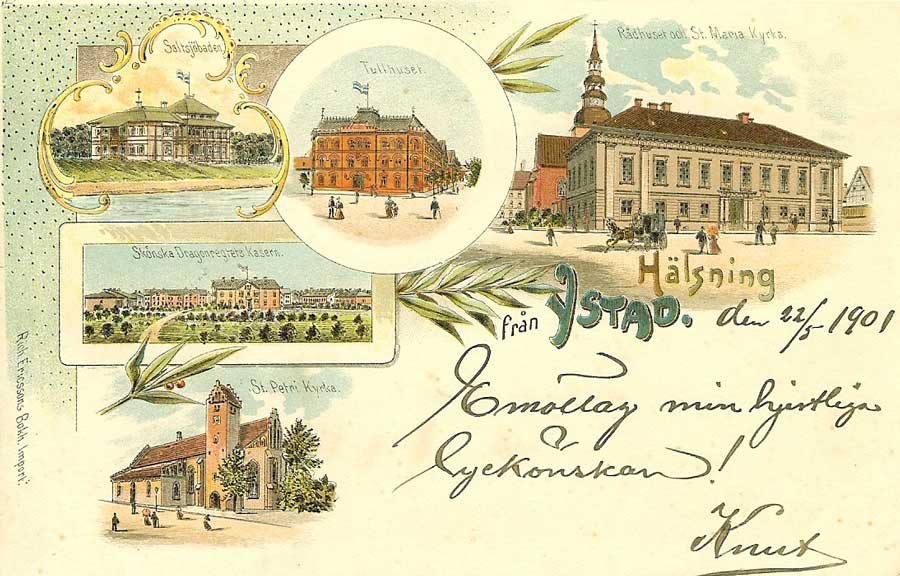 Saltsjöbaden.
Tullhuset.
Rådhuset och St. Maria Kyrka.
Skånska Dragonregtets Kasern.
St. Petri Kyrka.
Hälsning
från YSTAD. den 22/5 1901
Emottag min hjertliga
lyckönskan!
Knut
Rich. Ericssons Bokh. Import.